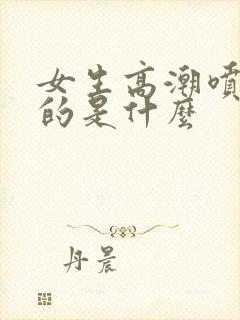 女生高潮噴
的是什麼
丹晨